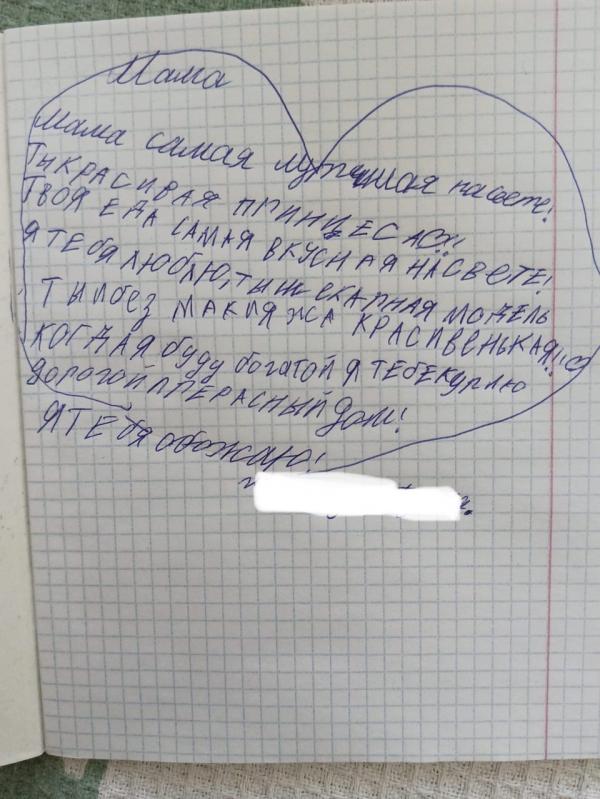 Мама
мама самая лутчшая насвете!
Ты КРАСИВАЯ ПРИНЦЕСА!!
ТВОЯ ЕДА САМАЯ ВКУСНАЯ НАСВЕТЕ!
Я ТЕбя люблю, ты шикарная модель
Ты ибез МАКИЯЖА КРАСИВЕНЬКАЯ!!
КОГДАЯ буду богатой я ТЕбЕ куплю
дорогой ПРЕРАСНЫЙ дом!
Я ТЕбя обожаю!